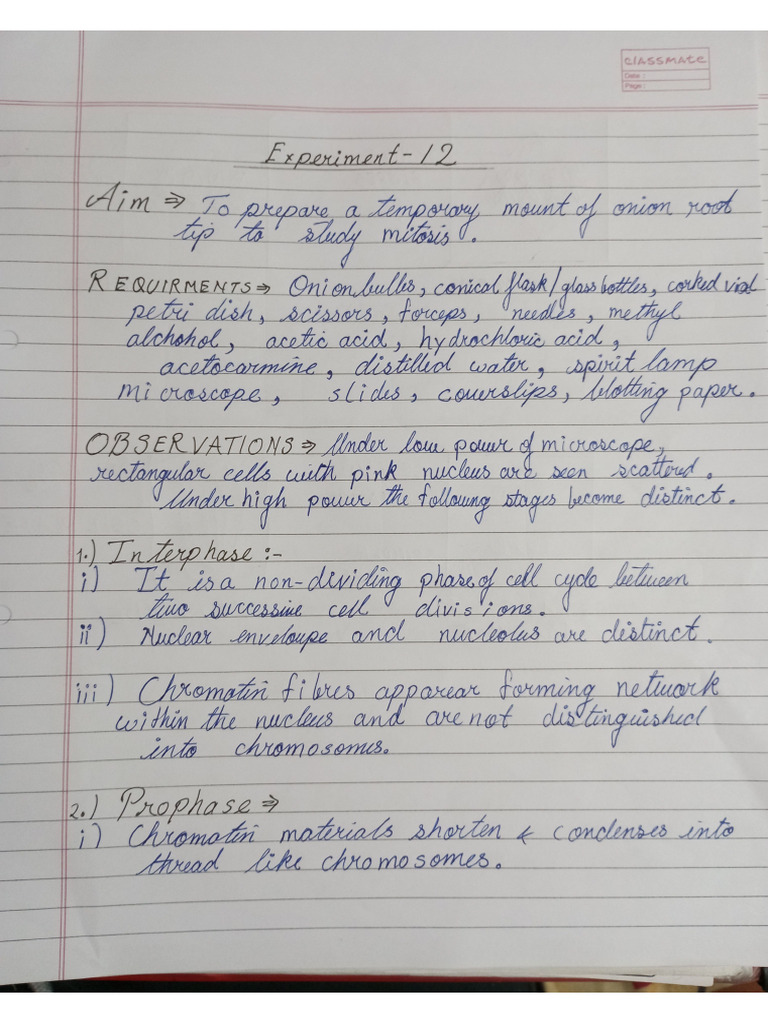 classmate
Date :
Page :
Experiment-12
Aim ⇒ To prepare a temporary mount of onion root
tip to study mitosis.
REQUIRMENTS ⇒ Onion bulbs, conical flask/glass bottles, corked vial
petri dish, scissors, forceps, needles, methyl
alchohol, acetic acid, hydrochloric acid,
acetocarmine, distilled water, spirit lamp
microscope, slides, coverslips, blotting paper.
OBSERVATIONS ⇒ Under low power of microscope,
rectangular cells with pink nucleus are seen scattered.
Under high power the following stages become distinct.
1.) Interphase :-
i) It is a non-dividing phase of cell cycle between
two successive cell divisions.
ii) Nuclear enveloupe and nucleolus are distinct.
iii) Chromatin fibres apparear forming network
within the nucleus and are not distinguished
into chromosomes.
2.) Prophase ⇒
i) Chromatin materials shorten & condenses into
thread like chromosomes.